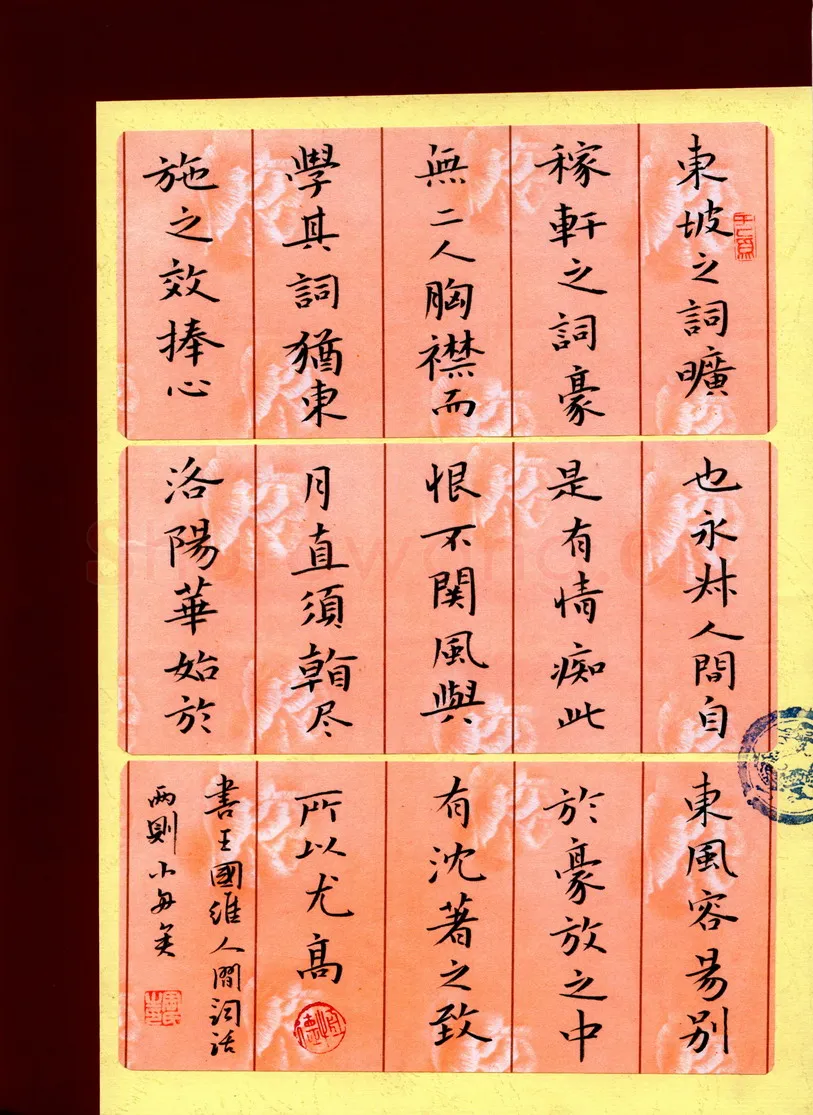 東坡之詞曠
稼軒之詞豪
無二人胸襟而
學其詞猶東
施之效捧心
也永叔人間自
是有情痴此
恨不関風與
月直須看尽
洛陽華始於
東風容易別
於豪放之中
有沈著之致
所以尤高
書王國維人間詞話
兩則小